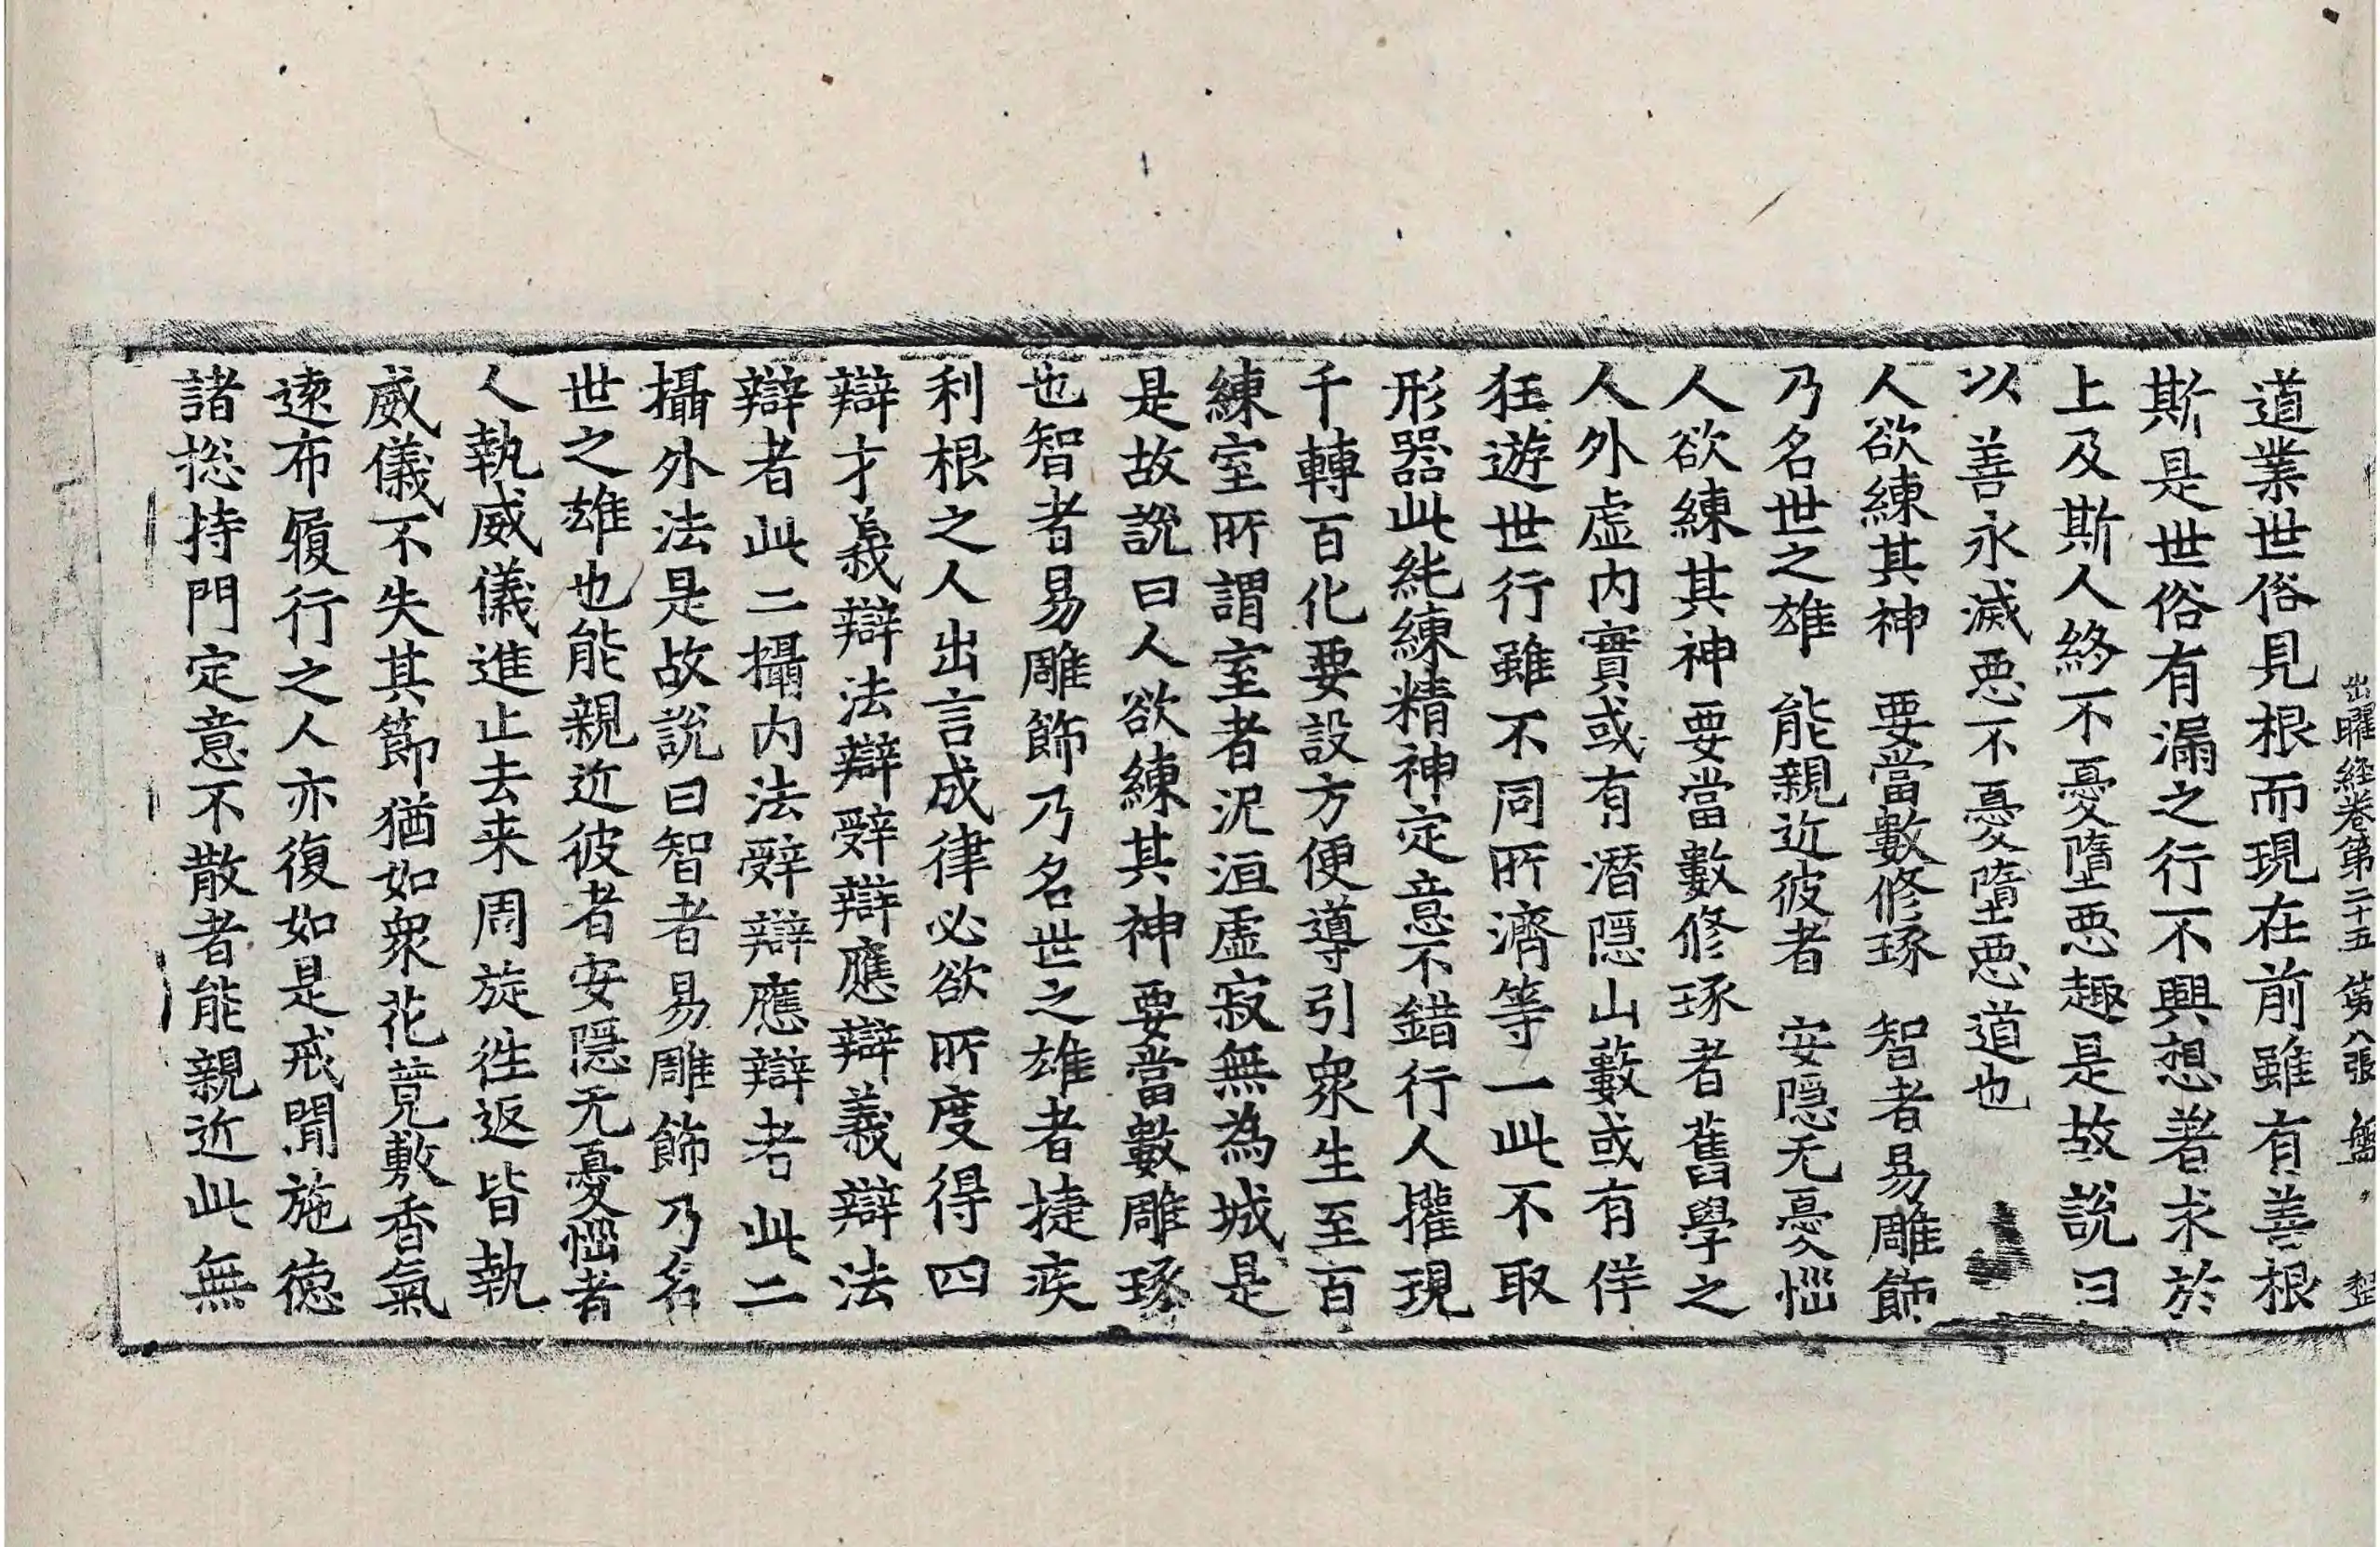 出曜経卷第二十五 第八張 盤
道業世俗見根而現在前雖有善根
斯是世俗有漏之行不興想著求於
上及斯人終不憂墮惡趣是故說曰
以善永滅惡不憂墮惡道也
人欲練其神 要當數修琢 智者易雕飾
乃名世之雄 能親近彼者 安隱无憂惱
人欲練其神要當數修琢者舊學之
人外虛内實或有潛隱山藪或有佯
狂遊世行雖不同所濟等一此不取
形器此能練精神定意不錯行人攉現
千轉百化要設方便導引衆生至百
練室所謂室者泥洹虛寂無為城是
是故說曰人欲練其神要當數雕琢
也智者易雕飾乃名世之雄者捷疾
利根之人出言成律必欲所度得四
辯才義辯法辯辭辯應辯義辯法
辯者此二攝内法辭辯應辯者此二
攝外法是故說曰智者易雕飾乃名
世之雄也能親近彼者安隱无憂惱者
人執威儀進止去来周旋徃返皆執
威儀不失其節猶如衆花蓂敷香氣
遠布履行之人亦復如是戒聞施德
諸捴持門定意不散者能親近此無